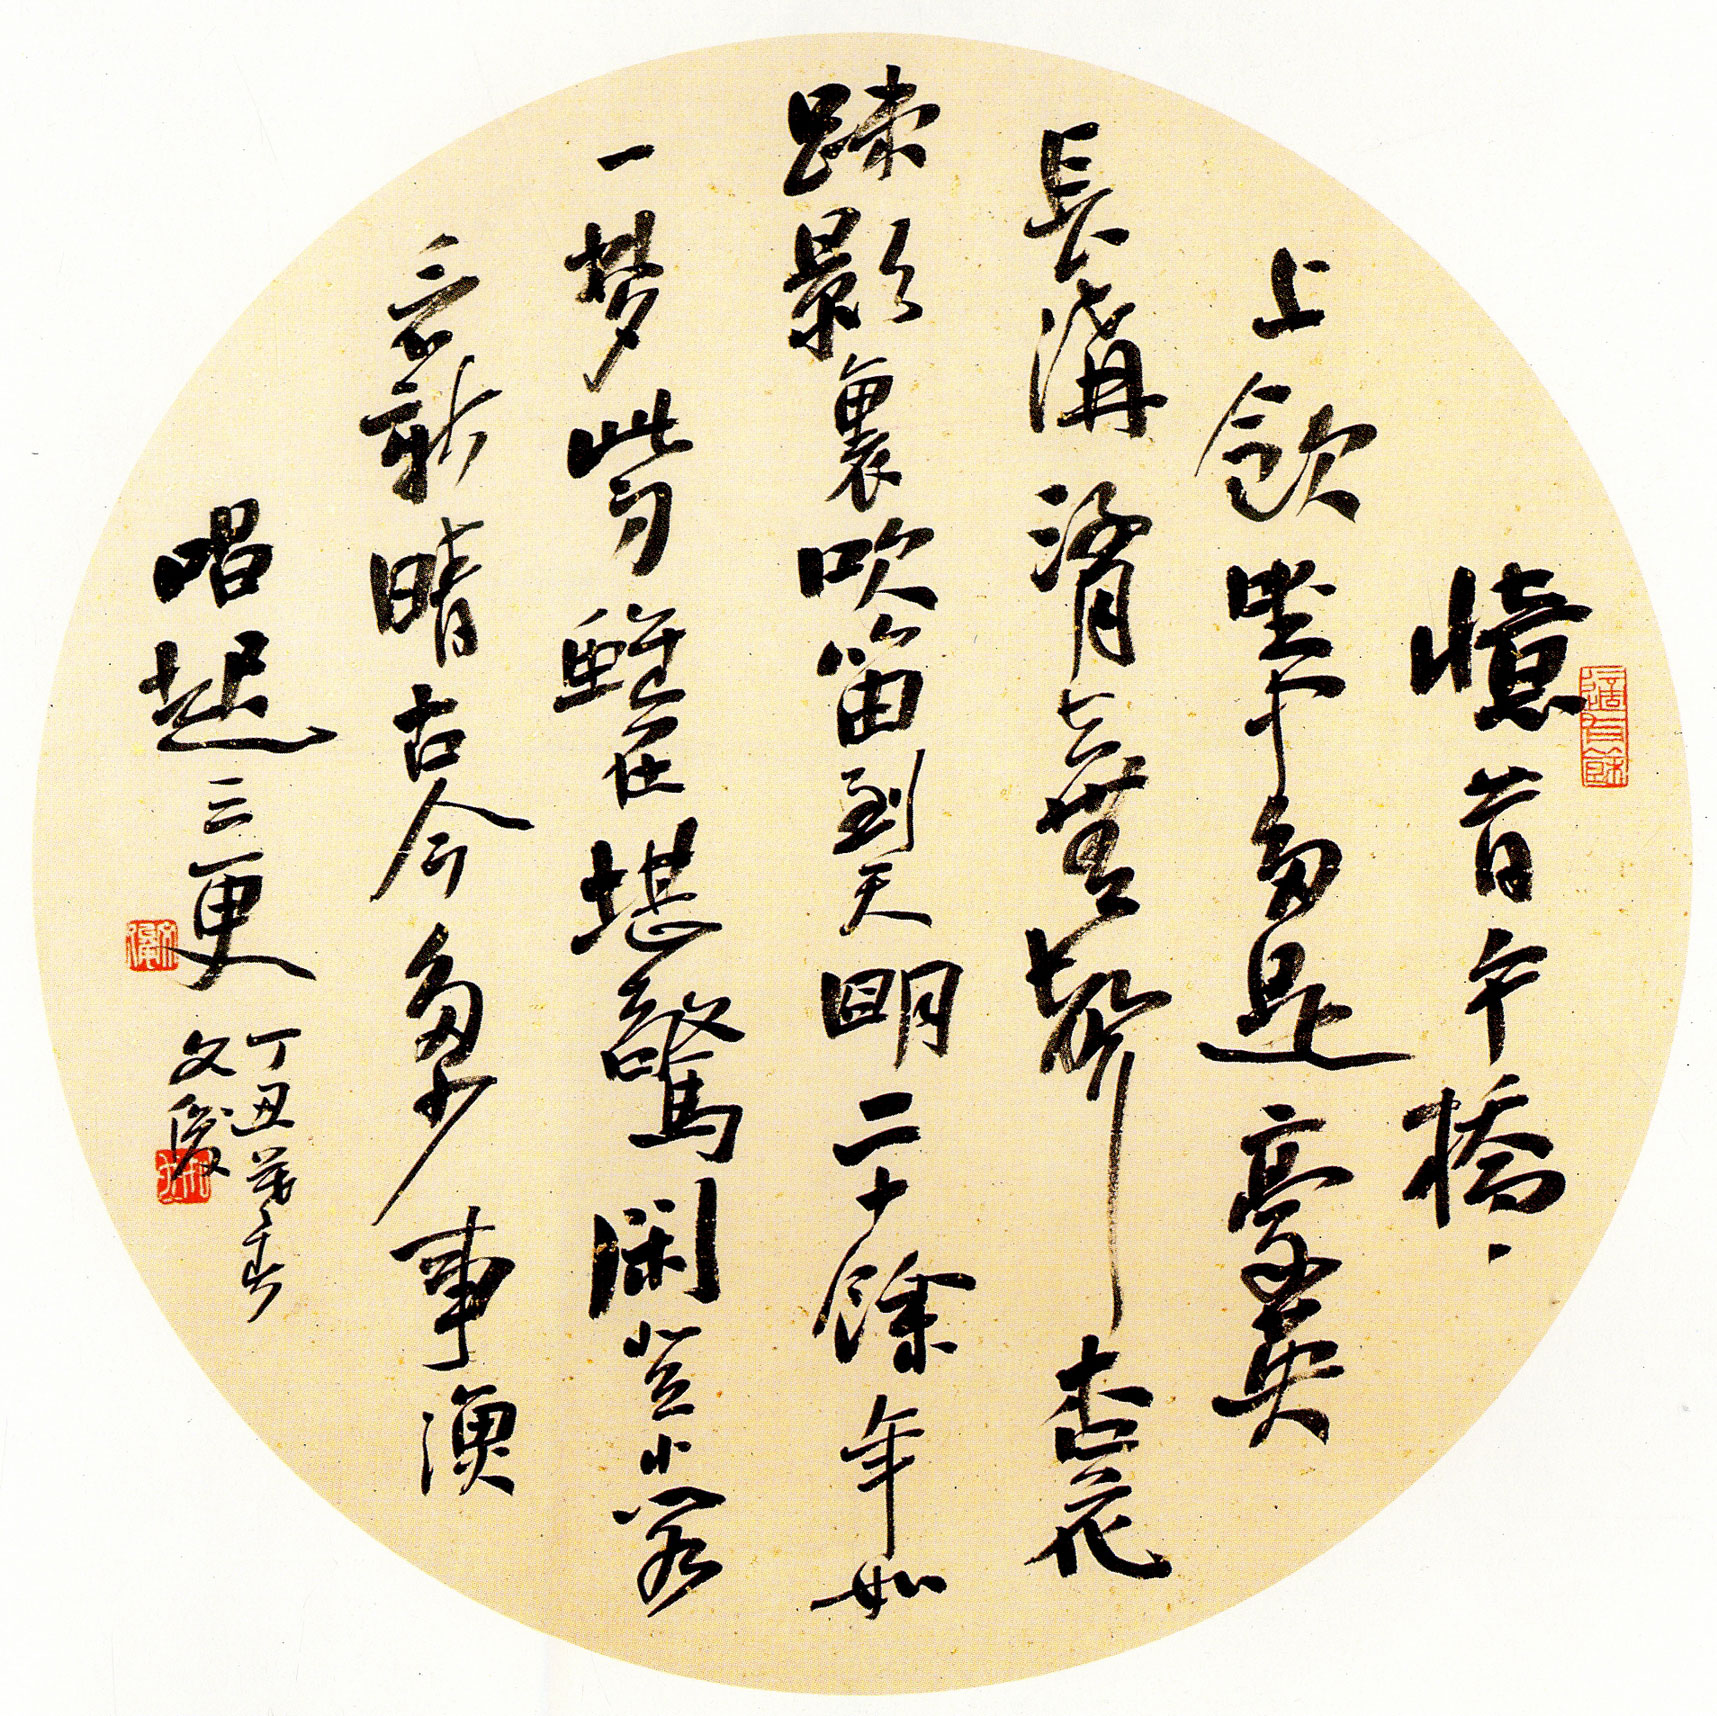 憶昔午橋、
上飲坐中多是豪英
長溝流月去無聲杏花
踈影裏吹笛到天明二十餘年如
一梦此身雖在堪驚閑登小閣
看新晴古今多少事漁
唱起三更
丁丑暮春
文俊